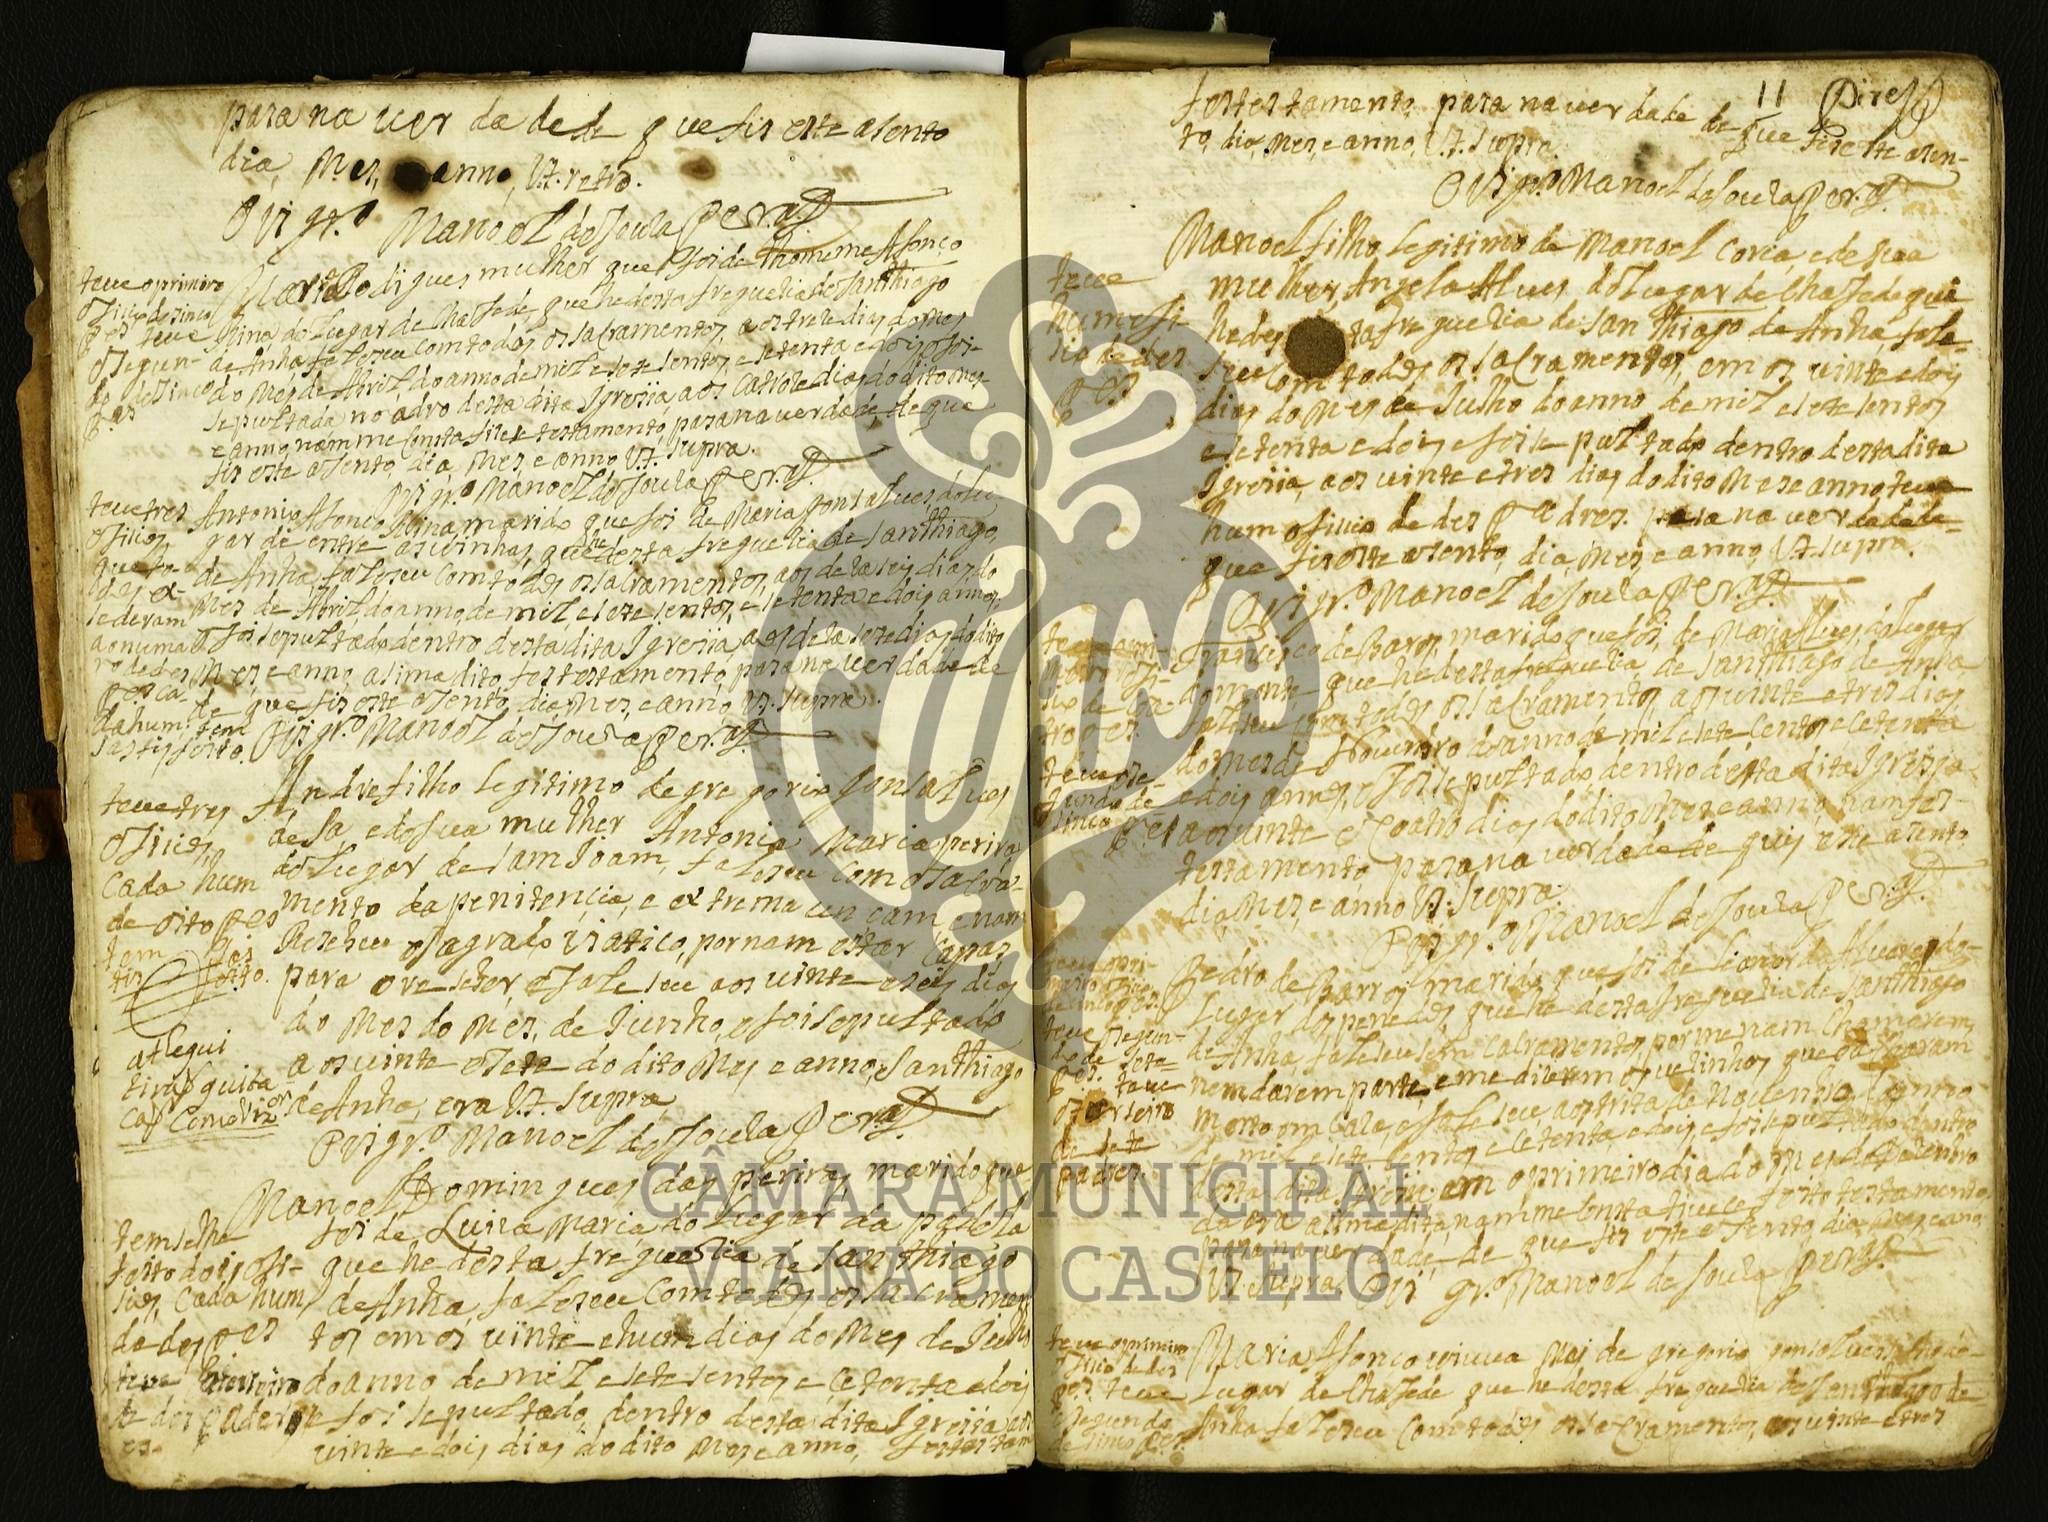 para na verdade de que fis este asento
dia, Mes, e anno, Vt. retro.
O Vigr.º Manoel de Soula Per.ª
teve o primeiro
ofiscio de sinco
P.es teve
o segun-
do de sinco
P.es
Maria Rodigues mulher que foi de Thome me Afonço
Nina do Lugar de Chafede que he desta freguezia de San Thiago
de Anha faleseu com todos os sacramentos, aos treze dias do mes
do Mes de Abril do anno de mil e sete sentos, e setenta e dois e foi
sepultada no adro desta dita Igreiia, aos catorze dias do dito mes
e anno, nam me consta fizese testamento, para na verdade de que
fis este asento, dia, Mes, e anno, Vt. Supra.
O Vigr.º Manoel de Soula Per.ª
teve tres
ofiscios
que to-
dos ex-
sederam
ao numa
ro de des
P.es ca-
da hum tem
sastisfeito.
Antonio Afonço Nina marido que foi de Maria Gonsalves, do Lu-
gar de entre as vinhas, que he desta freguezia de San Thiago,
de Anha, faleseu com todos os sacramentos, aos dezaseis dias do
Mes de Abril, do anno, de mil, e sete sentos, e setenta e dois annos,
e foi sepultado dentro desta dita Igreiia aos dezasete dias do dito
Mes e anno, asima dito, fes testamento, para na verdade de
de que fis este asento, dia, Mes, e anno, Vt. Supra.
O Vigr.º Manoel de Soula Per.ª
teve tres
ofiscios,
cada hum
de oito P.es
tem sas
tis feito.
Andre filho legitimo de gregorio gonsalves
de Sa, e de sua mulher Antonia Maria perira
do Lugar de Sam Joam, faleseu com o sacra-
mento da penitençia, e extrema uncam, e nam
Resebeu o sagrado viatico, por nam estar capas
para o reseber, e faleseu aos vinte e seis dias
do Mes do Mes, de Junho, e foi sepultado
aos vinte e sete do dito Mes e anno, San Thiago
de Anha, era Vt. Supra
O Vigr.º Manoel de Soula Per.ª
athequi
Manoel Domingues das periras, marido que
foi de Luiza Maria do Lugar da padela
que he desta freguezia de San Thiago
de Anha, faleseu com todos os sacramen
tos em os vinte e hum dias do Mes de Julho
do anno de mil e sete sentos e setenta e dois
e foi sepultado, dentro desta dita Igreiia aos
vinte e dois dias do dito Mes, e anno, fes testam
temselhe
feito dois ofi-
sios, cada hum
de des P.es
teve terseiro
de des padres
11 Pires
fes testamento, para na verdade de que fis este asen-
to, dia, Mes, e anno, Vt. Supra.
O Vigr.º Manoel de Soula Per.ª
teve
hum ofi-
sio de des
P.es
Manoel filho legitimo de Manoel Coria, e de sua
mulher, Angela Alves do Lugar de Chafede que
he desta freguezia de San Thiago de Anha, fale-
seu com todos os sacramentos, em os vinte e dois
dias do Mes de Julho do anno de mil e sete sentos
e setenta e dois e foi sepultado dentro desta dita
Igreiia, aos vinte e tres dias do dito Mes e anno, teve
hum ofiscio de des Padres. para na verdade de
que fis este asento, dia, Mes, e anno, Vt. Supra.
O Vigr.º Manoel de Soula Per.ª
Francisco de Baros, marido que foi, de Maria Alves, do Lugar
do monte, que he desta freguezia, de San Thiago de Anha,
faleseu com todos os sacramentos aos vinte e tres dias
do Mes de Novenbro do anno de mil e sete centos e cetenta
e dois annos, e foi sepultado, dentro desta dita Igreija
aos vinte e coatro dias do dito Mes e anno, nam fes-
testamento, para na verdade de que fis este asento
dia, Mes, e anno Vt. Supra.
O Vigr.º Manoel de Soula Per.ª
teve o segun-
do de sete
P.es teve
o terseiro
de sete
padres.
Pedro de Barros marido que foi de Lianor da Alvarenga do
Lugar dos penedos que he desta freguezia de San Thiago
de Anha, faleseu sem sacramentos, por me nam chamarem,
nem darem parte, e me diseram os vezinhos que o acharam
morto em caza, e faleseu aos trita de Novenbro do anno
de mil e sete sentos e cetenta e dois, e foi sepultado dentro
desta dita Igreija em o primeiro dia do Mes de Dezenbro
da era asima dita, nam me consta tivece feito testamento,
para na verdade, de que fis este asento, dia, Mes, e ano,
Vt. Supra O Vigr.º Manoel de Soula Per.ª
teve o primeiro
ofiscio de des
P.es teve
o segundo
de sinco P.es
Maria Afonço viuva Mai de gregorio gonsalves, do
Lugar de Chafede que he desta freguezia de San Thiago de
Anha faleseu com todos os sacramentos, os vinte e tres
CÂMARA MUNICIPAL
VIANA DO CASTELO